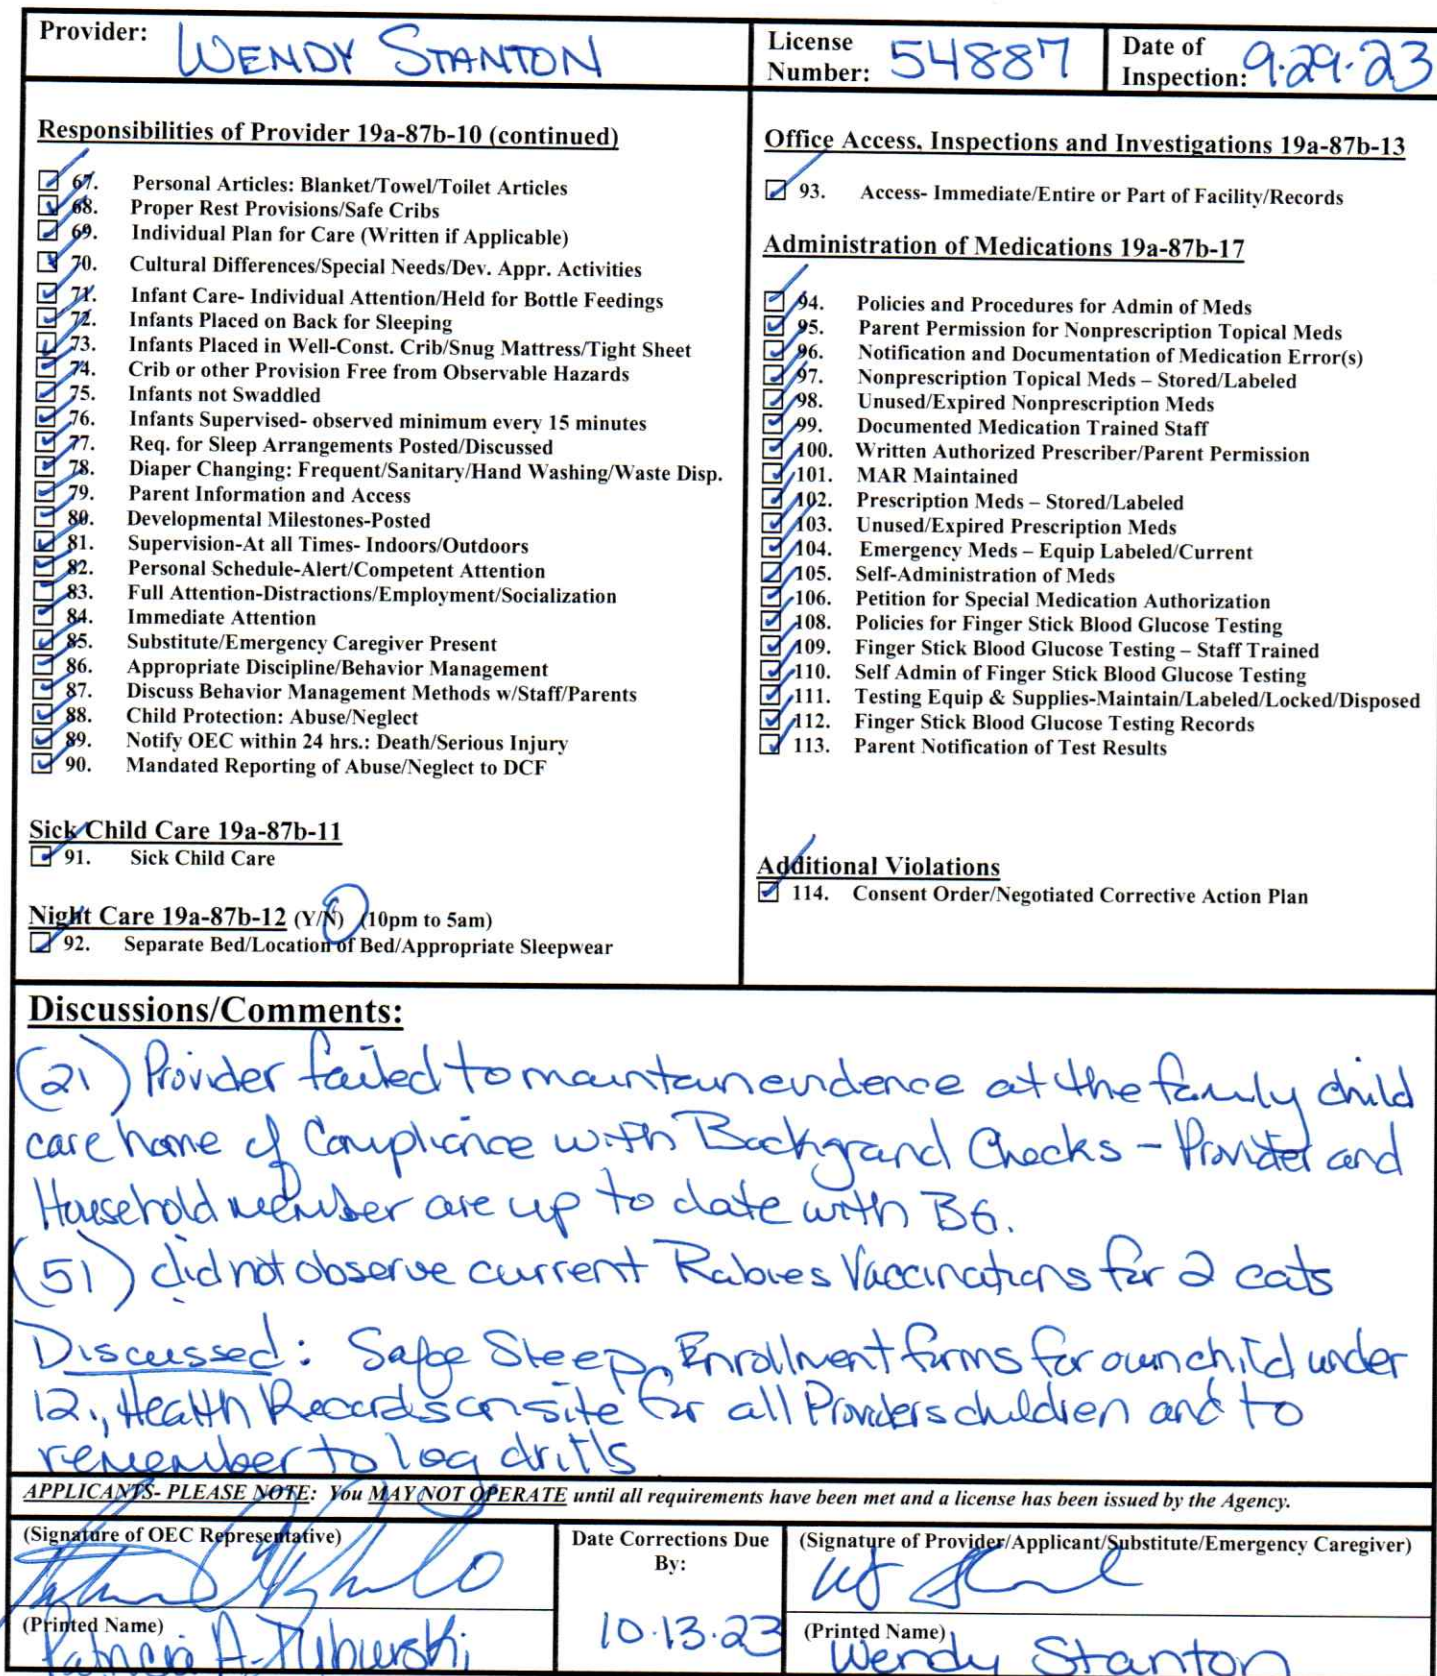 Provider: WENDY STANTON
License Number: 54887
Date of Inspection: 9.29.23
Responsibilities of Provider 19a-87b-10 (continued)
67. Personal Articles: Blanket/Towel/Toilet Articles
68. Proper Rest Provisions/Safe Cribs
69. Individual Plan for Care (Written if Applicable)
70. Cultural Differences/Special Needs/Dev. Appr. Activities
71. Infant Care- Individual Attention/Held for Bottle Feedings
72. Infants Placed on Back for Sleeping
73. Infants Placed in Well-Const. Crib/Snug Mattress/Tight Sheet
74. Crib or other Provision Free from Observable Hazards
75. Infants not Swaddled
76. Infants Supervised- observed minimum every 15 minutes
77. Req. for Sleep Arrangements Posted/Discussed
78. Diaper Changing: Frequent/Sanitary/Hand Washing/Waste Disp.
79. Parent Information and Access
80. Developmental Milestones-Posted
81. Supervision-At all Times- Indoors/Outdoors
82. Personal Schedule-Alert/Competent Attention
83. Full Attention-Distractions/Employment/Socialization
84. Immediate Attention
85. Substitute/Emergency Caregiver Present
86. Appropriate Discipline/Behavior Management
87. Discuss Behavior Management Methods w/Staff/Parents
88. Child Protection: Abuse/Neglect
89. Notify OEC within 24 hrs.: Death/Serious Injury
90. Mandated Reporting of Abuse/Neglect to DCF
Sick Child Care 19a-87b-11
91. Sick Child Care
Night Care 19a-87b-12 (Y/N) (10pm to 5am)
92. Separate Bed/Location of Bed/Appropriate Sleepwear
Office Access, Inspections and Investigations 19a-87b-13
93. Access- Immediate/Entire or Part of Facility/Records
Administration of Medications 19a-87b-17
94. Policies and Procedures for Admin of Meds
95. Parent Permission for Nonprescription Topical Meds
96. Notification and Documentation of Medication Error(s)
97. Nonprescription Topical Meds – Stored/Labeled
98. Unused/Expired Nonprescription Meds
99. Documented Medication Trained Staff
100. Written Authorized Prescriber/Parent Permission
101. MAR Maintained
102. Prescription Meds – Stored/Labeled
103. Unused/Expired Prescription Meds
104. Emergency Meds – Equip Labeled/Current
105. Self-Administration of Meds
106. Petition for Special Medication Authorization
108. Policies for Finger Stick Blood Glucose Testing
109. Finger Stick Blood Glucose Testing – Staff Trained
110. Self Admin of Finger Stick Blood Glucose Testing
111. Testing Equip & Supplies-Maintain/Labeled/Locked/Disposed
112. Finger Stick Blood Glucose Testing Records
113. Parent Notification of Test Results
Additional Violations
114. Consent Order/Negotiated Corrective Action Plan
Discussions/Comments:
(21) Provider failed to maintain evidence at the family child
care home of Compliance with Background Checks – Provider and
Household member are up to date with BG.
(51) did not observe current Rabies Vaccinations for 2 cats
Discussed: Safe Sleep, Enrollment forms for own child under
12., Health Records on site for all Providers children and to
remember to log drills
APPLICANTS- PLEASE NOTE: You MAY NOT OPERATE until all requirements have been met and a license has been issued by the Agency.
(Signature of OEC Representative)
(Printed Name)
Patricia A.
Date Corrections Due
By:
10.13.23
(Signature of Provider/Applicant/Substitute/Emergency Caregiver)
(Printed Name)
Wendy Stanton